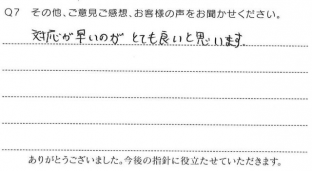 Q7 その他、ご意見ご感想、お客様の声をお聞かせください。
対応が早いのが とても良いと思います.
ありがとうございました。今後の指針に役立たせていただきます。